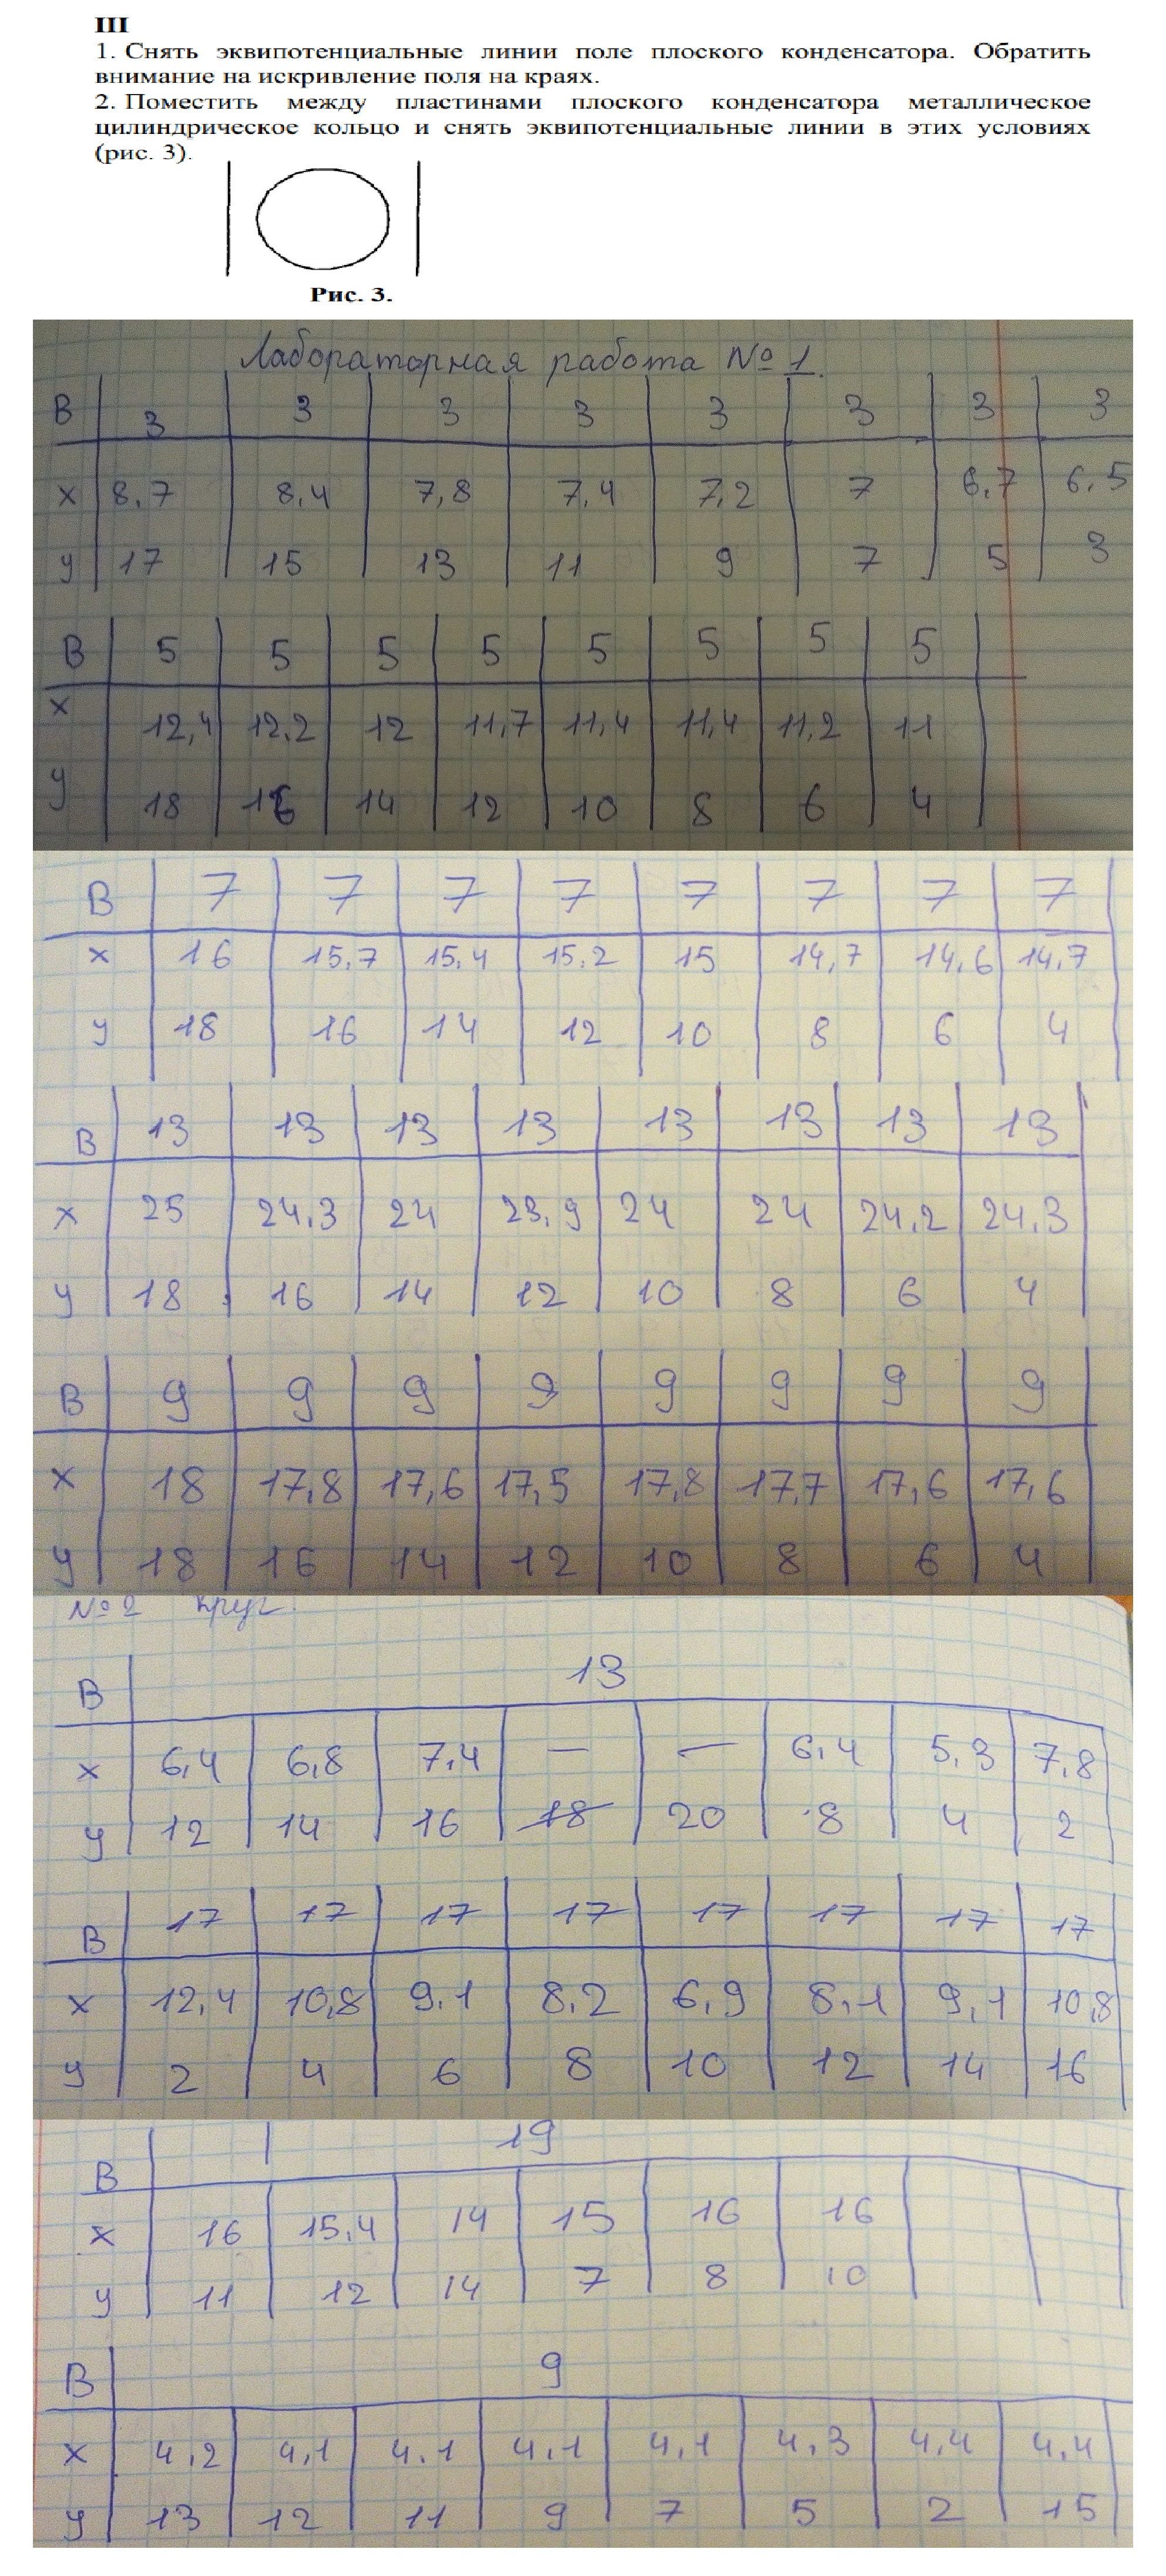 III
1. Снять эквипотенциальные линии поле плоского конденсатора. Обратить
внимание на искривление поля на краях.
2. Поместить между пластинами плоского конденсатора металлическое
цилиндрическое кольцо и снять эквипотенциальные линии в этих условиях
(рис. 3).
Рис. 3.
Лабораторная работа №1.
В 3 3 3 3 3 3 3 3
х 8,7 8,4 7,8 7,4 7,2 7 6,7 6,5
у 17 15 13 11 9 7 5 3
В 5 5 5 5 5 5 5 5
х 12,4 12,2 12 11,7 11,4 11,4 11,2 11
у 18 16 14 12 10 8 6 4
В 7 7 7 7 7 7 7 7
х 16 15,7 15,4 15,2 15 14,7 14,6 14,7
у 18 16 14 12 10 8 6 4
В 13 13 13 13 13 13 13 13
х 25 24,3 24 23,9 24 24 24,2 24,3
у 18 16 14 12 10 8 6 4
В 9 9 9 9 9 9 9 9
х 18 17,8 17,6 17,5 17,8 17,7 17,6 17,6
у 18 16 14 12 10 8 6 4
№2 круг.
В 13
х 6,4 6,8 7,4 — — 6,4 5,3 7,8
у 12 14 16 18 20 8 4 2
В 17 17 17 17 17 17 17 17
х 12,4 10,8 9,1 8,2 6,9 8,1 9,1 10,8
у 2 4 6 8 10 12 14 16
В 19
х 16 15,4 14 15 16 16
у 11 12 14 7 8 10
В 9
х 4,2 4,1 4,1 4,1 4,1 4,3 4,4 4,4
у 13 12 11 9 7 5 2 15